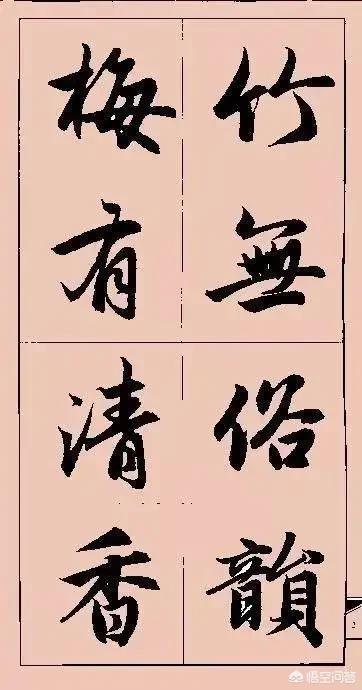 竹無俗韻
梅有清香
2
悟空问答